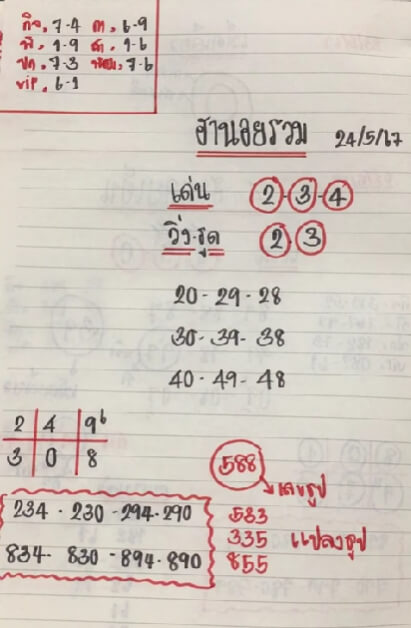 กิจ. 7-4 ก. 6-9
พิ. 1-9 สา. 1-6
ปก. 7-3 พัฒ. 7-6
vip. 6-1
ฮานอยรวม 24/5/67
เด่น 2-3-4
วิ่ง.รูด 2.3
20 - 29 - 28
30 - 39 - 38
40 - 49 - 48
2 4 9 6
3 0 8
588
เลขธูป
234 - 230 - 294 - 290
834 - 830 - 894 - 890
583
335 แปลงธูป
855